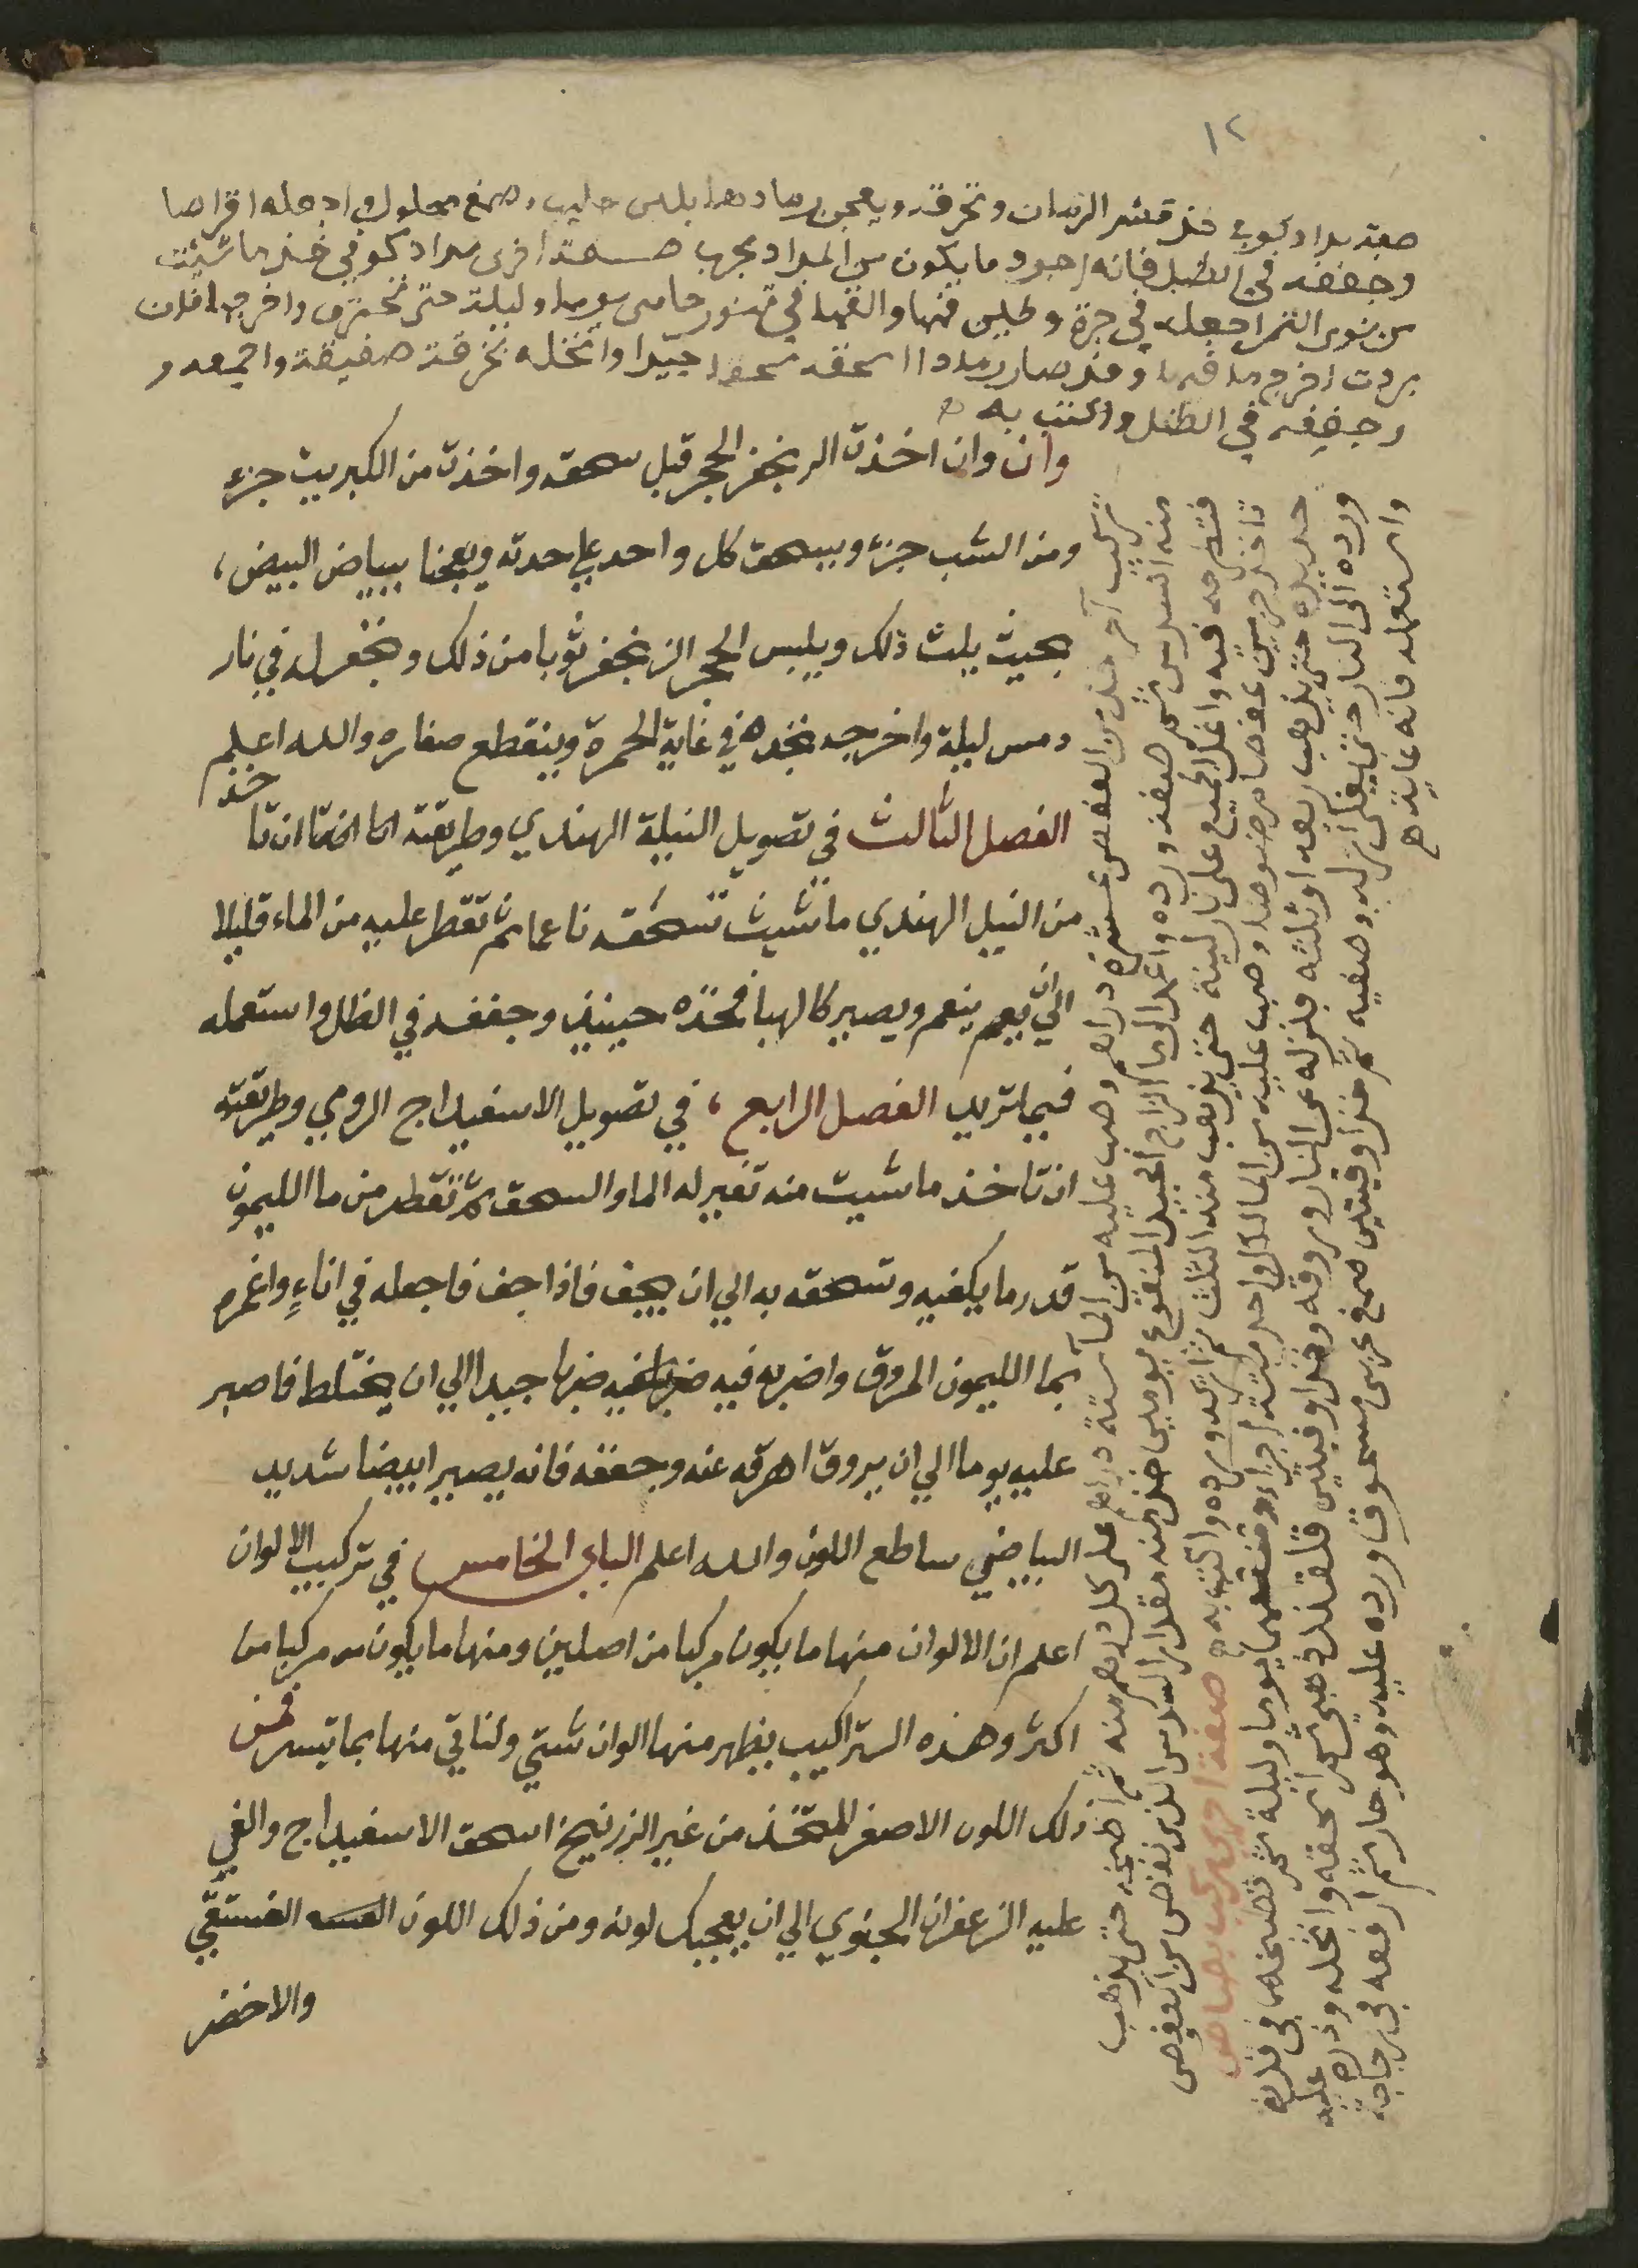 ١٢
صفة مداد كوفي خذ قشر الرمان وتحرقه ويعجن رمادها بلبن حليب وصمغ محلول واجعله اقراصا
وجففه في الظل فانه اجود ما يكون من المداد مجرب صفة اخرى مداد كوفي خذ ما شئت
من نوى التمر اجعله في جرة وطين فمها والقها في تنور حامى يوما وليلة حتى تحترق واخرجها فان
بردت اخرج ما فيها وقد صار رمادا اسحقه سحقا جيدا وانخله بخرقة صفيقة واجمعه
وجففه في الظل واكتب به
وان وان اخذت الزنجفر الحجر قبل سحقه واخذت من الكبريت جزء
ومن الشب جزء ويسحق كل واحد علي حدته ويعجنا ببياض البيض،
بحيث يلت ذلك ويلبس الحجر الزنجفر ثوبا من ذلك وتحفر له في نار
دمس ليلة واخرجه تجده في غاية الحمرة وينقطع صفاره والله اعلم
الفصل الثالث في تصويل النيلة الهندي وطريقته ان تا خذ
من النيل الهندي ما شيت تسحقه ناعما ثم تقطر عليه من الماء قليلا
الي ان ينعم ويصير كالهبا فخذه حينيذ وجففه في الظل واستعمله
فيما تريد الفصل الرابع، في تصويل الاسفيداج الرومي وطريقته
ان تاخذ ما شيت منه تغير له الما والسحق ثم تقطر من ما الليمون
قدر ما يكفيه وتسحقه به الي ان يجف فاذا جف فاجعله في اناءٍ واغمره
بما الليمون المروق واضربه فيه ضربا جيدا الي ان يختلط فاصبر
عليه يوما الي ان يروق اهرقه عنه وجففه فانه يصير ابيضا شديد
البياضي ساطع اللون والله اعلم الباب الخامس في تركيب الالوان
اعلم ان الالوان منها ما يكون مركبا من اصلين ومنها ما يكون مركبا من
اكثر وهذه التراكيب يظهر منها الوان شتي ولناتي منها بما تيسر فمن
ذلك اللون الاصفر المتخذ من غير الزرنيخ اسحق الاسفيداج والقي
عليه الزعفران الجنوي الي ان يعجبك لونه ومن ذلك اللون الفستقي
والاخضر
تركيب آخر خذ من العفص عشرة دراهم وصب عليه من الما ستة دراهم على كل درهم منه ثم اطبخه حتى يذهب
منه السدس ثم صفه ورده واعمد الى الزاج الجيد المنقوع يومين خذ منه مقدار السدس الذى نقص من العفص
فتطرحه فيه واغل الجميع على نار لينة حتى يذهب منه الثلث ثم ورده واكتب به صفة اخرى تركيب بصاص
تاخذ جزين عفصا مرضوضا وصب عليه من الما لكل واحد ستة اجزاء وتنقعهما يوما وليلة ثم تطبخه في قدر
حديد حتى يذهب ربعه او ثلثه فنزله عن النار وروقه وخذ اوقيتين قلقند ذهبى ثم اسحقه وانخله وذره عليه
ورده الى النار حتى يغلى انزله وصفيه ثم خذ اوقيتين صمغ عربى مسحوقا ورده عليه وهو حار ثم ارفعه في زجاجة
واستعمله فانه غاية